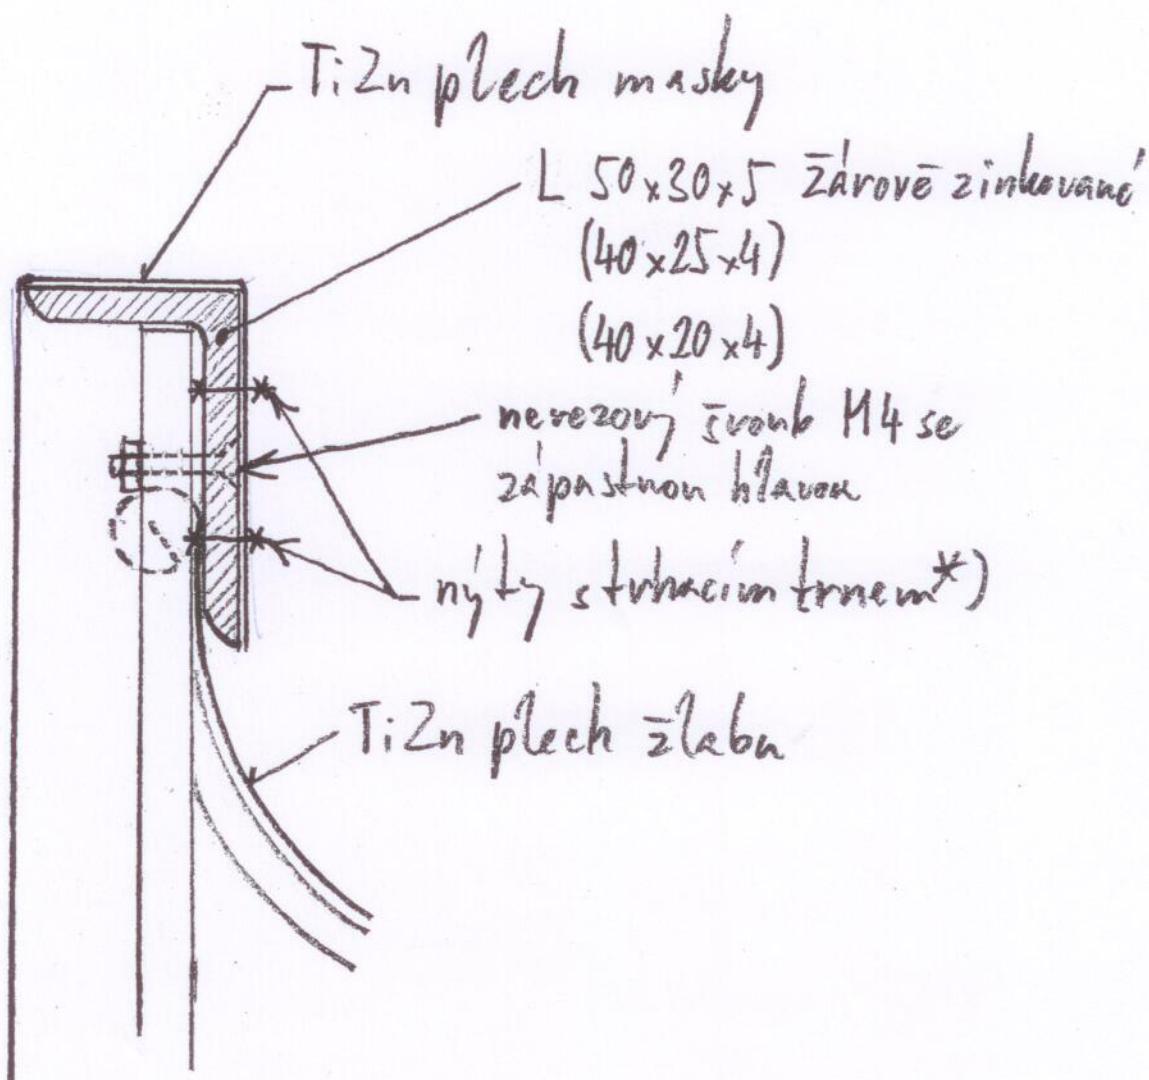 TiZn plech masky
L 50x30x5 žárově zinkované
(40x25x4)
(40x20x4)
nerezový šroub M4 se
zápustnou hlavou
nýty s trhacím trnem*)
TiZn plech žlabu